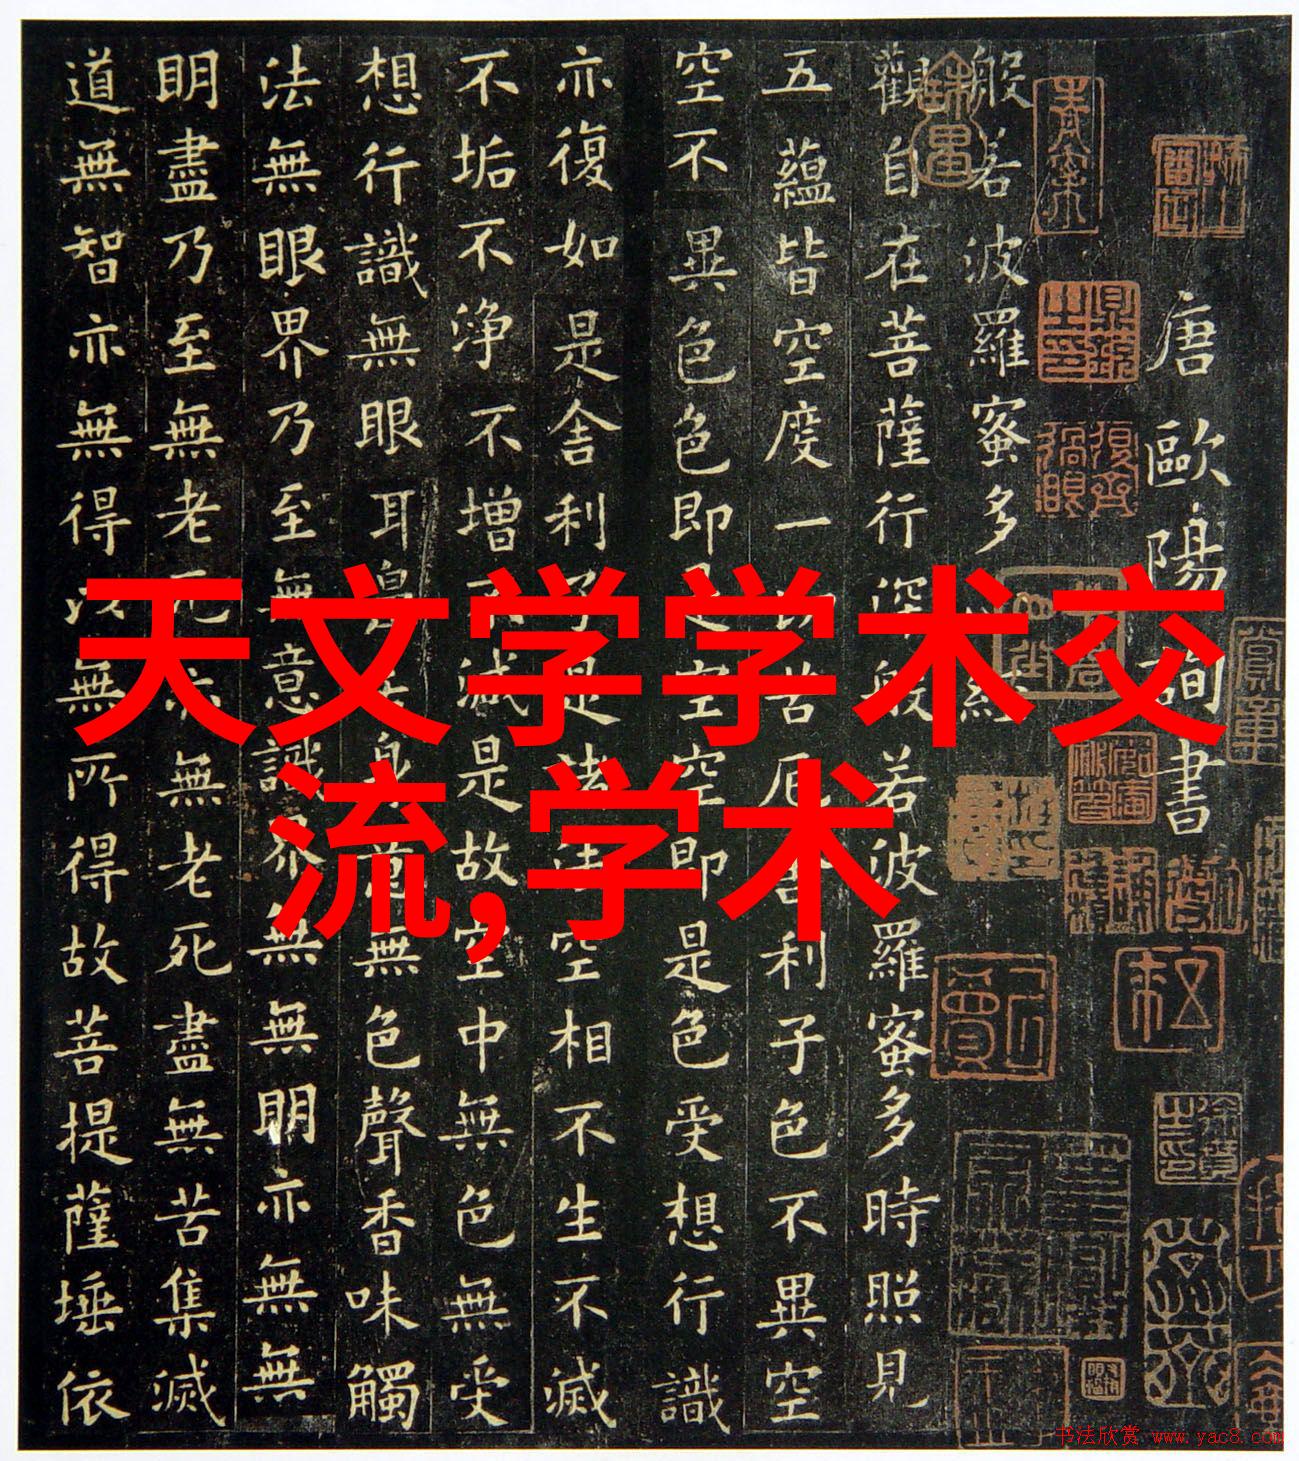 天文学学术交
流,学术
唐歐陽詢書
般若波羅蜜多經
觀自在菩薩行深般若波羅蜜多時照見
五蘊皆空度一切苦厄舍利子色不異空
空不異色色即是空空即是色受想行識
亦復如是舍利子是諸法空相不生不滅
不垢不淨不增不減是故空中無色無受
想行識無眼耳鼻舌身意無色聲香味觸
法無眼界乃至無意識界無無明亦無無
明盡乃至無老死亦無老死盡無苦集滅
道無智亦無得以無所得故菩提薩埵依
书法欣赏 www.yac8.com